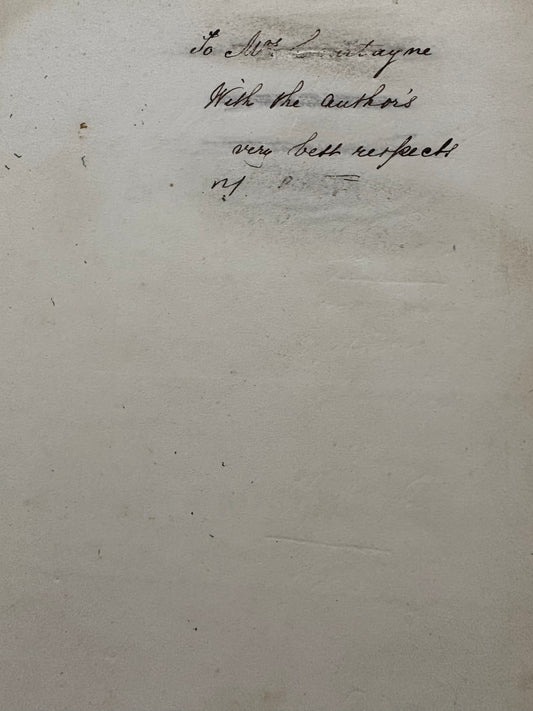 To Mrs
With the author's
very best respects